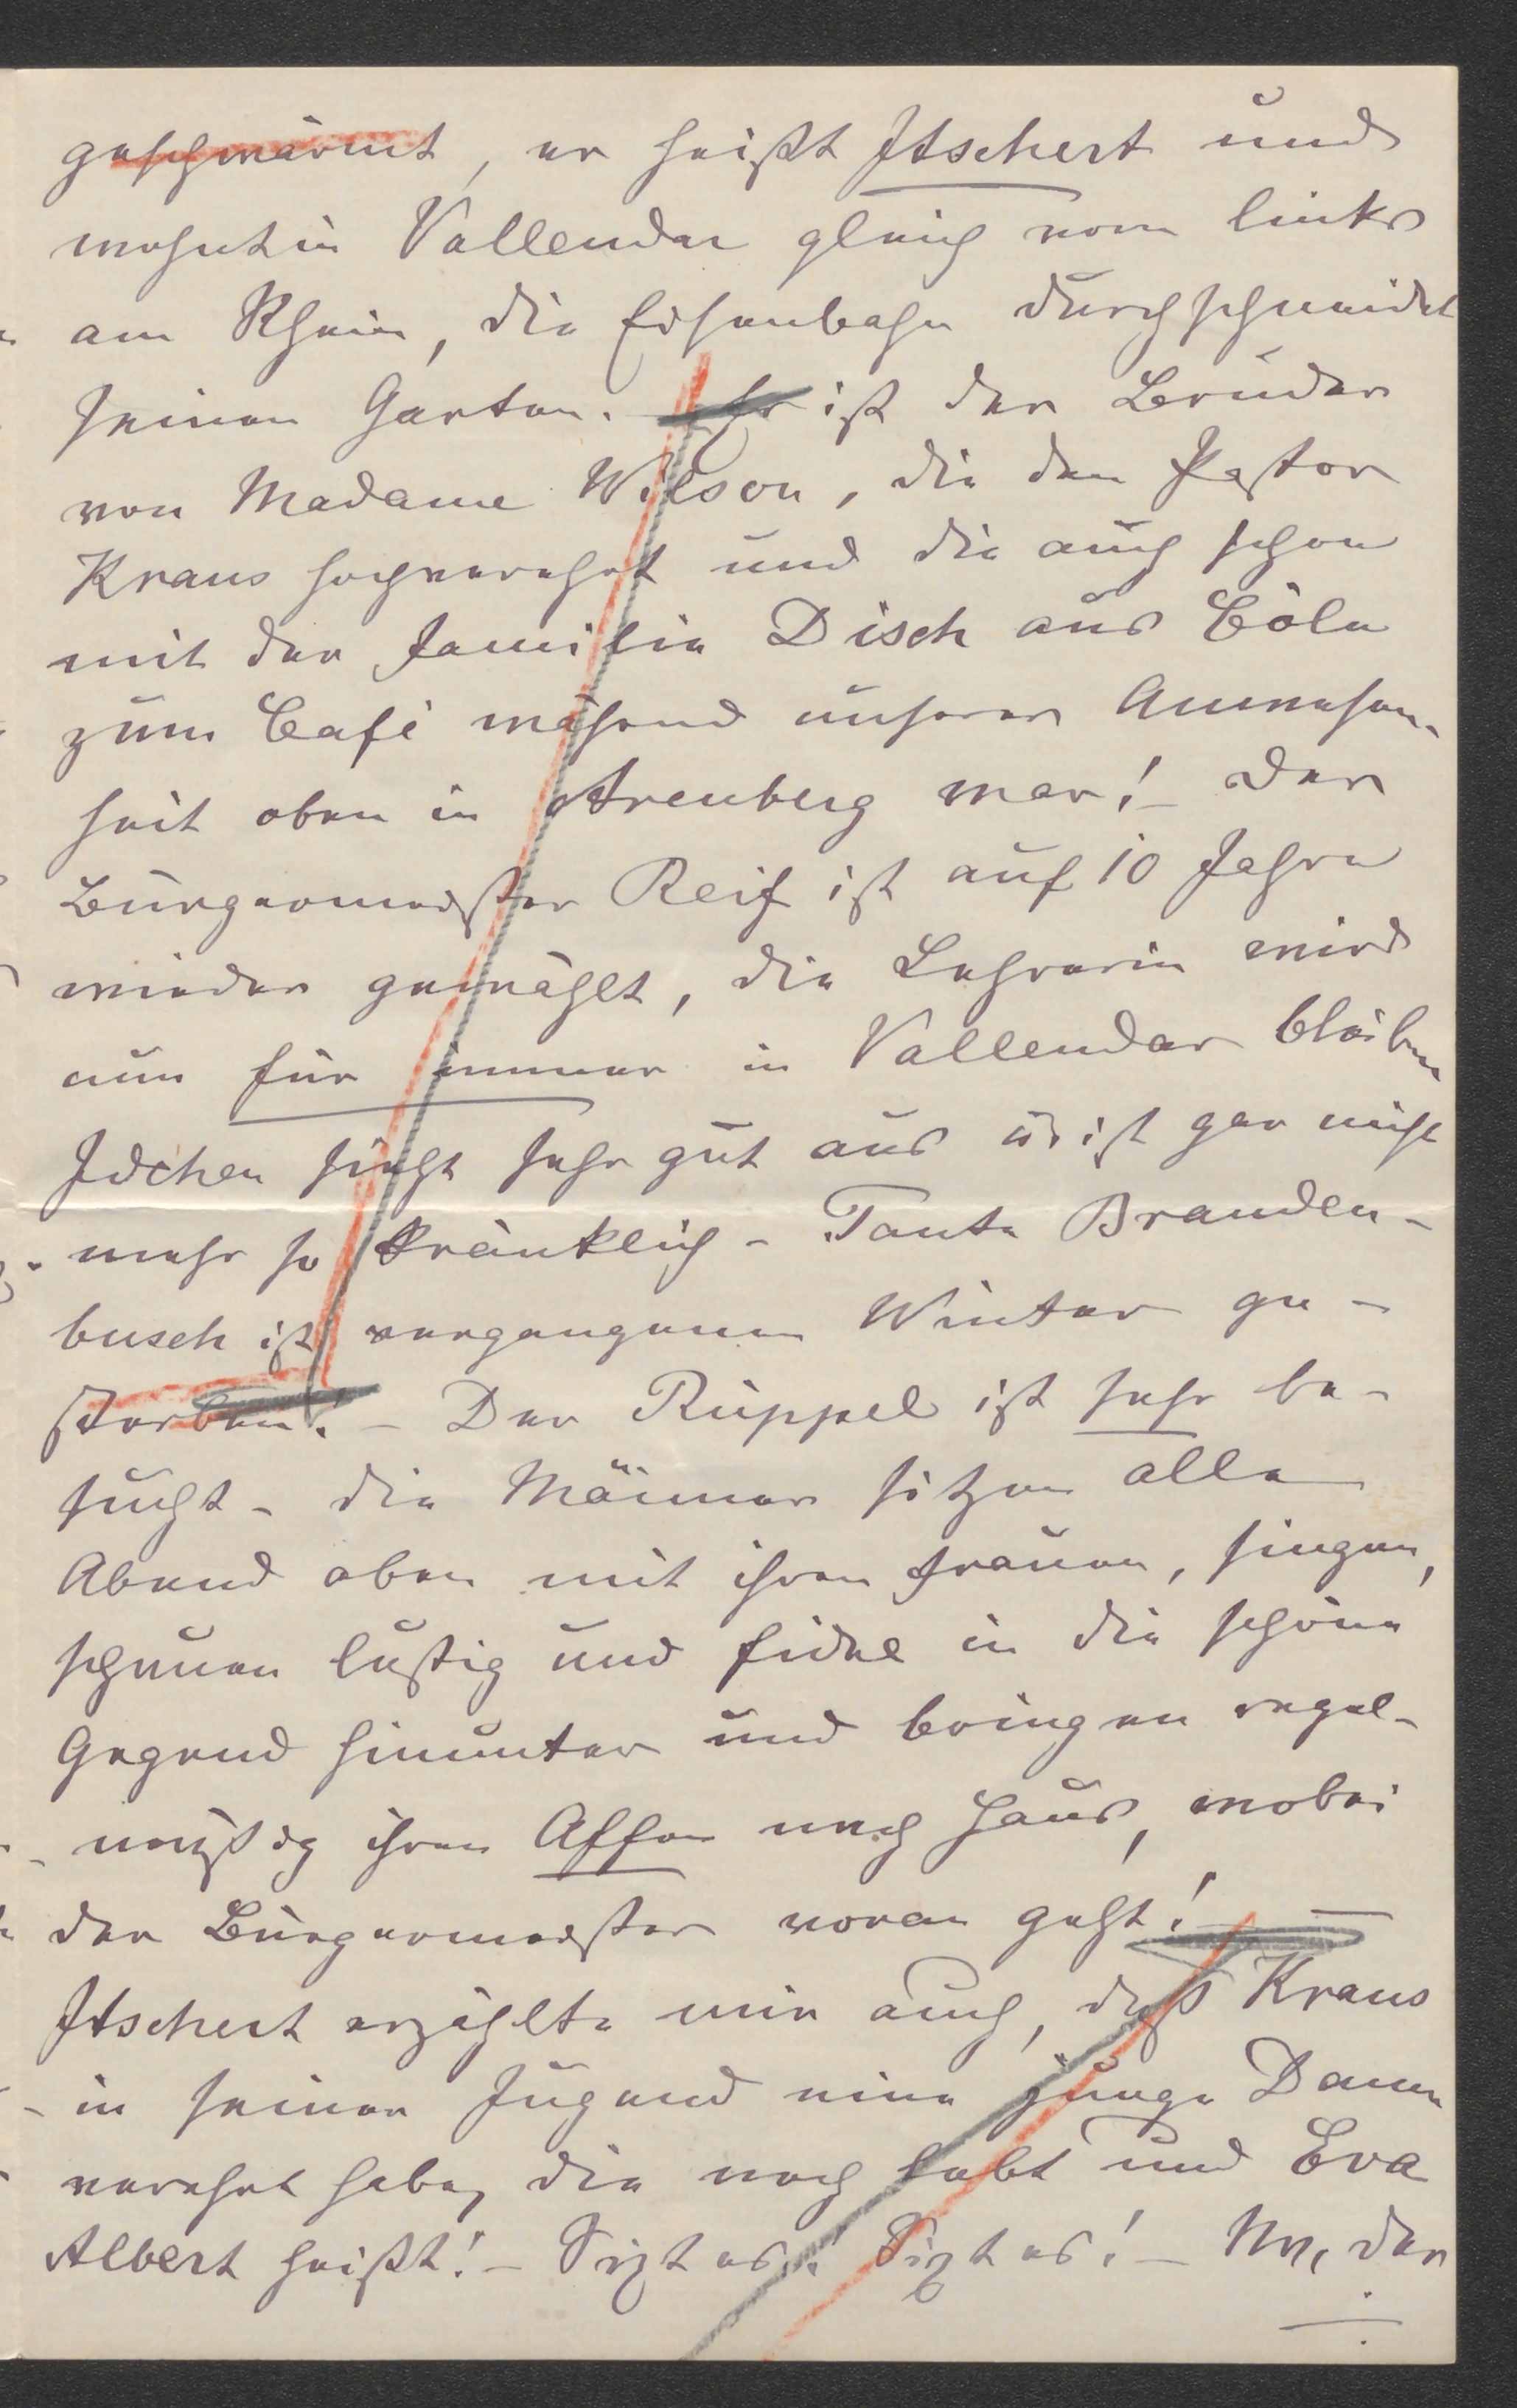 geschwärmt, er heißt Itschert und
wohnt in Vallendar gleich vorn links
am Rhein, die Eisenbahn durchschneidet
seinen Garten. Er ist der Bruder
von Madame Wilson, die den Pastor
Kraus hochverehrt und die auch schon
mit der Familie Disch aus Cöln
zum Café während unserer Anwesen-
heit oben in Arenberg war! – Der
Bürgermeister Reif ist auf 10 Jahre
wieder gewählt, die Lehrerin wird
nun für immer in Vallendar bleiben
Idchen sieht sehr gut aus u. ist gar nicht
mehr so kränklich – Tante Branden-
busch ist vergangenen Winter ge-
storben! – Der Rüppel ist sehr be-
sucht – die Männer sitzen alle
Abend oben mit ihren Frauen, singen,
schauen lustig und fidel in die schöne
Gegend hinunter und bringen regel-
mäßig ihren Affen nach Haus, wobei
der Bürgermeister voran geht! –
Itschert erzählte mir auch, daß Kraus
in seiner Jugend eine junge Dame
verehrt habe, die noch lebt und Eva
Albert heißt! – Der